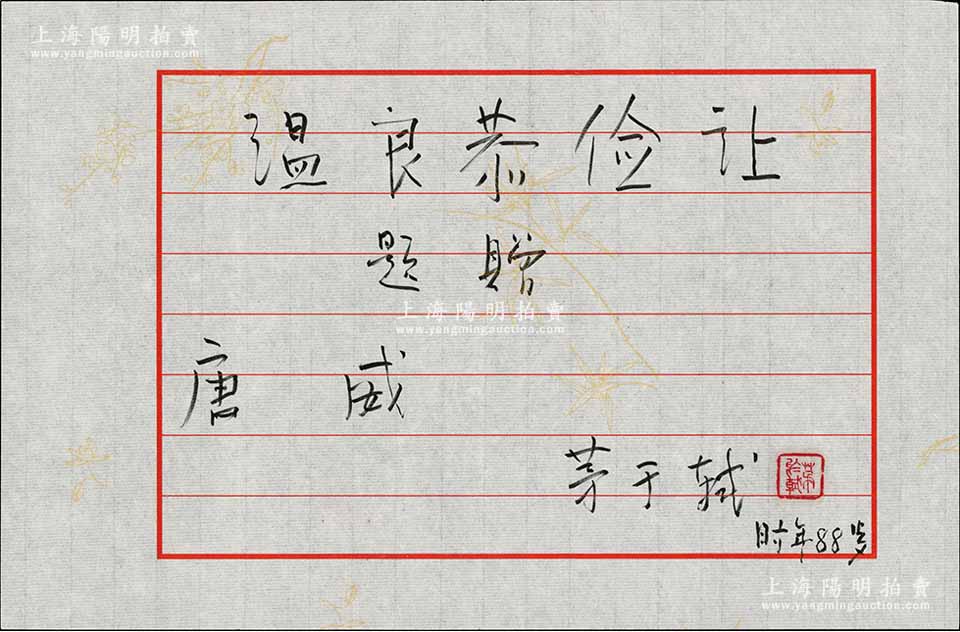 上海陽明拍賣
www.yangmingauction.com
温良恭俭让
题赠
上海陽明拍賣
www.yangmingauction.com
唐威
茅于轼
茅于軾
时年88岁
上海陽明拍賣
www.yangmingauction.com